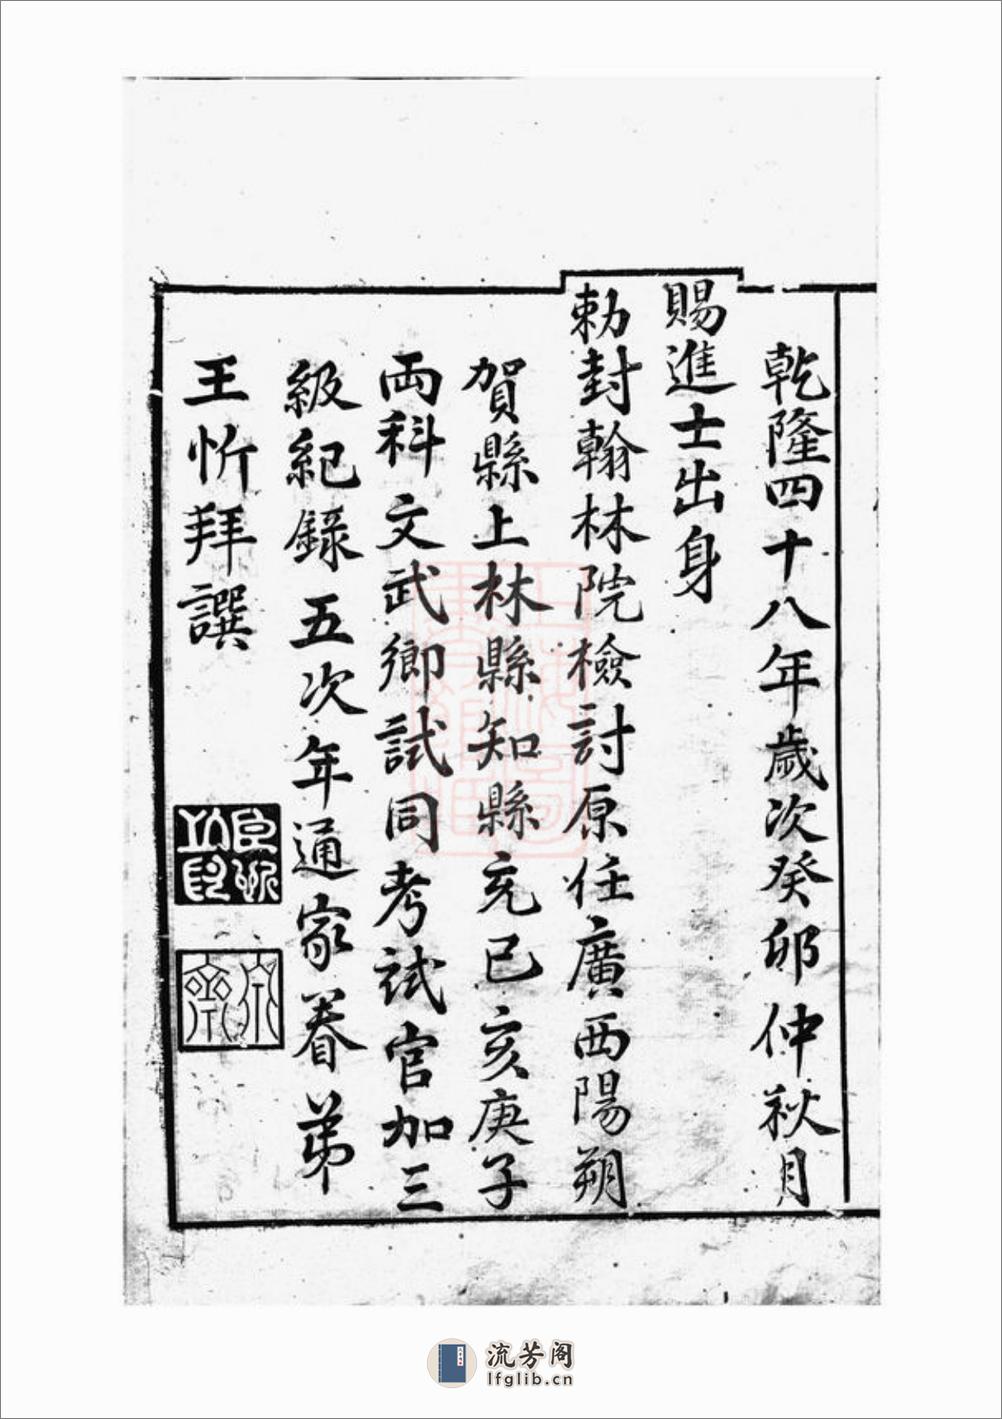 乾隆四十八年歲次癸卯仲秋月
賜進士出身
勅封翰林院檢討原任廣西陽朔
賀縣上林縣知縣充已亥庚子
両科文武鄉試同考試官加三
級紀錄五次年通家眷弟
王忻拜譔
臣忻
之印
流芳阁
lfglib.cn